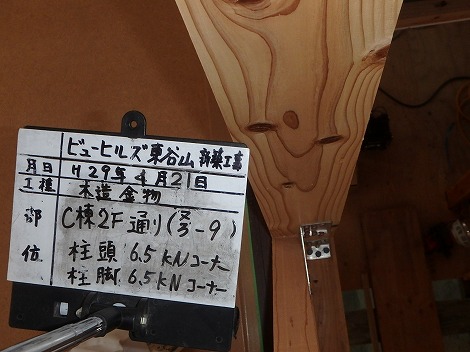 ビューヒルズ東谷山 新築工事
月日 H29年4月21日
工種 木造金物
部位 C棟2F通り(又3-9)
柱頭 6.5kNコーナー
柱脚 6.5kNコーナー